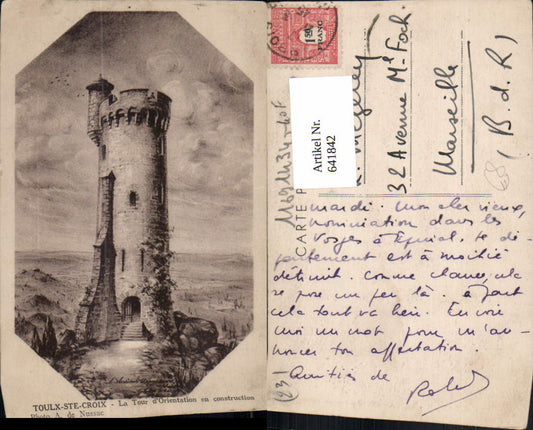 TOULX-STE-CROIX - La Tour d'Orientation en construction
Photo A. de Nussac
Artikel Nr.
641842
CARTE P
32 Avenue Ml Foch
Marseille
(B. d. R)
mardi. mon cher vieux,
nomination dans les
Vosges à Epinal. Le dé-
partement est à moitié
détruit. comme chance, cela
se pose un peu là. à part
cela tout va bien. Envoie
moi un mot pour m'an-
noncer ton affectation.
Amitiés de